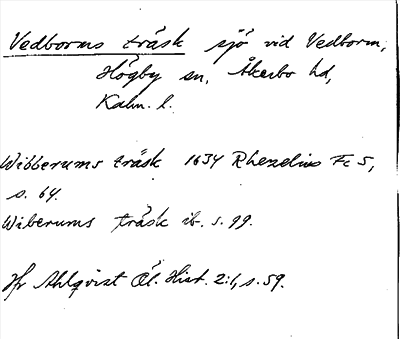 Vedborms träsk sjö vid Vedborm,
Högby sn, Åkerbo hd,
Kalm. l.
Wibberums träsk 1634 Rhezelius Fc 5,
s. 64.
Wiberums träsk ib. s. 99.
Jfr Ahlqvist Öl. Hist. 2:1, s. 59.